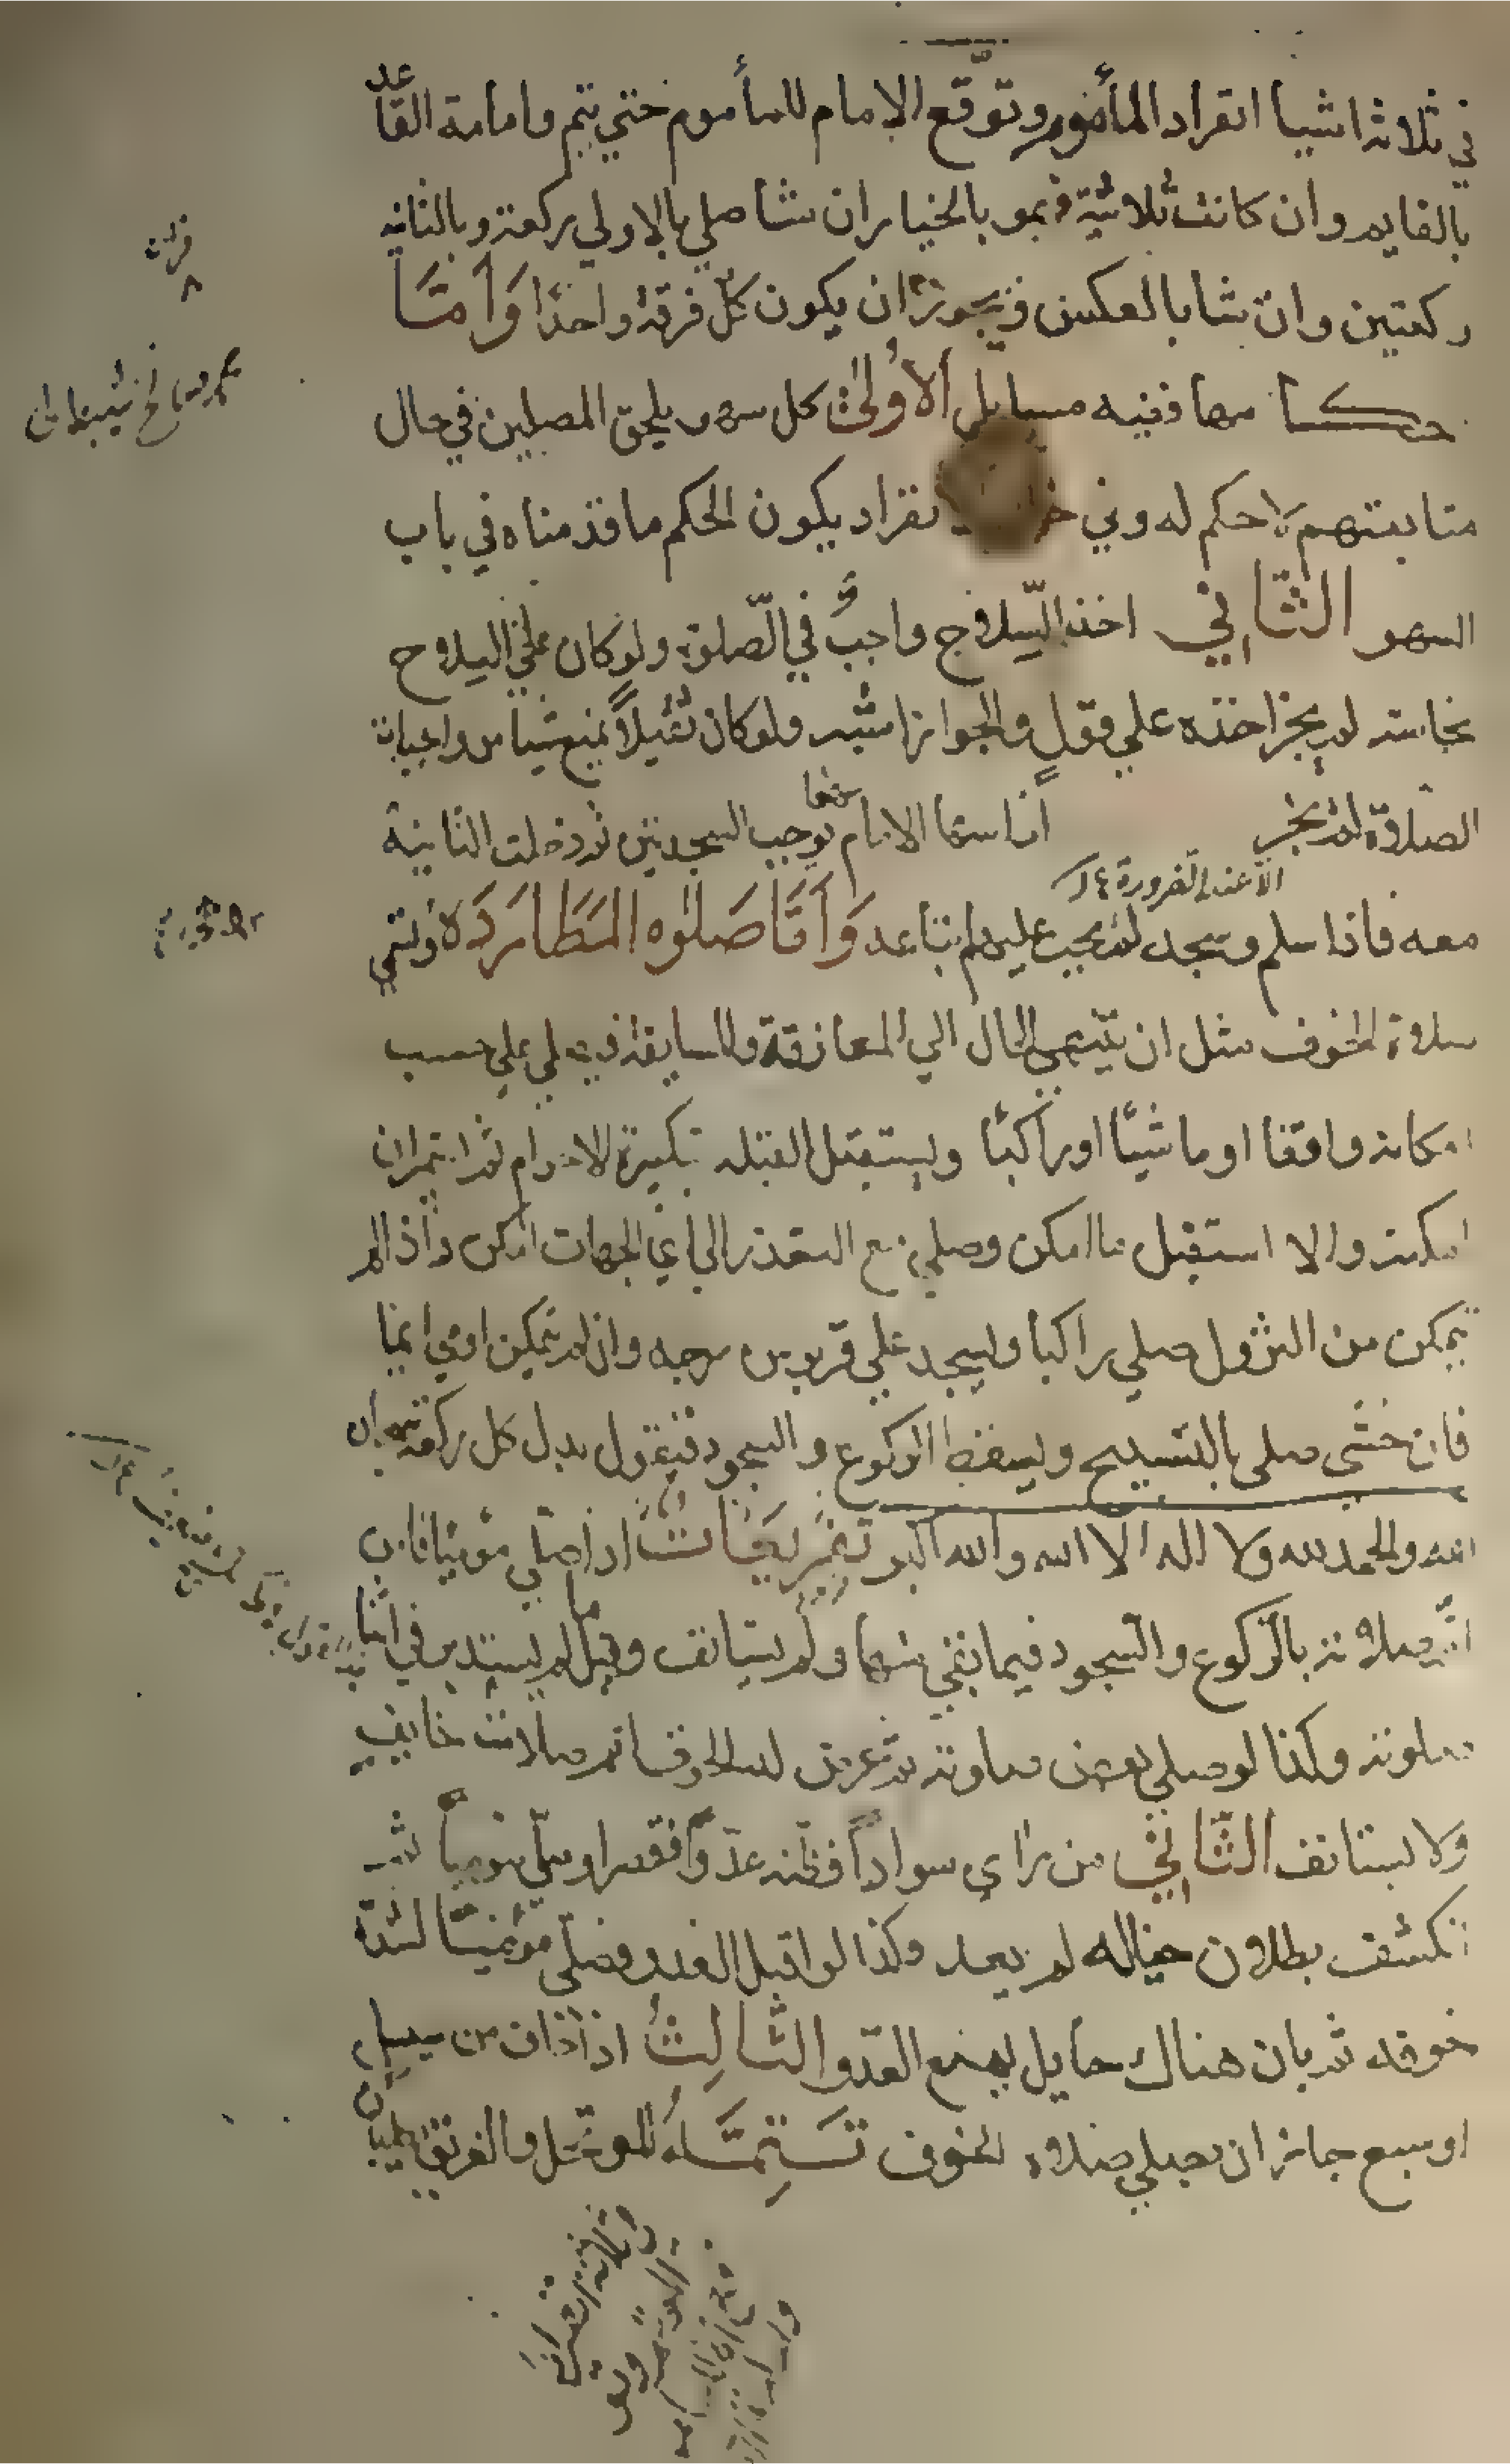 في ثلاثة اشيا انفراد المأموم وتوقع الامام للمأموم حتي يتم وامامة القاعد
بالقايم وان كانت ثلاثية فهو بالخيار ان شا صلي بالاولي ركعة وبالثانيه
ركعتين وان شا بالعكس ويجوز ان يكون كل فرقة واحدًا وَأَمَّا
احكامها ففيه مسايل الأولىٰ كل سهو يلحق المصلين في حال
متابعتهم لا حكم له وفي حال الانفراد يكون الحكم ما قدمناه في باب
السهو الثَّاني اخذ السّلاح واجبٌ في الصّلوة ولو كان علي السلاح
نجاسة لم يجز اخذه علي قولٍ والجواز اشبه ولو كان ثقيلاً يمنع شيا من واجبات
الصلاة لم يجز اذا سها الامام سهوا يوجب السجدتين ثم دخلت الثانية
الا عند الضرورة
معه فاذا سلم وسجد لم يجب عليها اتباعه وَأَمَّا صَلوٰه المَطَارَدَة وتسمي
صلاة الخوف مثل ان ينتهي الحال الي المعانقة والمسايفة فيصلي علي حسب
امكانه واقفا او ماشيًا او راكبًا ويستقبل القبله بتكبيرة الاحرام ثم استمر ان
امكنه والا استقبل ما امكن وصلي مع التعذر الي اي الجهات امكن واذا لم
يتمكن من النزول صلي راكبا ويسجد علي قربوس سرجه وان لم يتمكن اومي ايما
فان خشي صلي بالتسبيح ويسقط الركوع والسجود فيقول بدل كل ركعة سبحان
الله والحمد لله ولا اله الا الله والله اكبر تفريعَاتٌ اذا صلي موميا فامن
اتم صلاته بالركوع والسجود فيما بقي منها ولم يستانف وقيل ما لم يستدبر في اثنا
صلوته وكذا لو صلي بعض صلوته ثم عرض له الخوف اتم صلاة خايف
ولا يستانف الثَّاني من رأي سوادًا فظنه عدوًّا فقصر او صلّي موميًا ثم
انكشف بطلان خياله لم يعد وكذا لو اقبل العدو فصلّي موميًا لشدة
خوفه ثم بان هناك حايل يمنع العدو الثالِثُ اذا خاف من سيل
او سبع جاز ان يصلي صلاة الخوف تَتِمَّةٌ المتوحّل والغريق يصليان